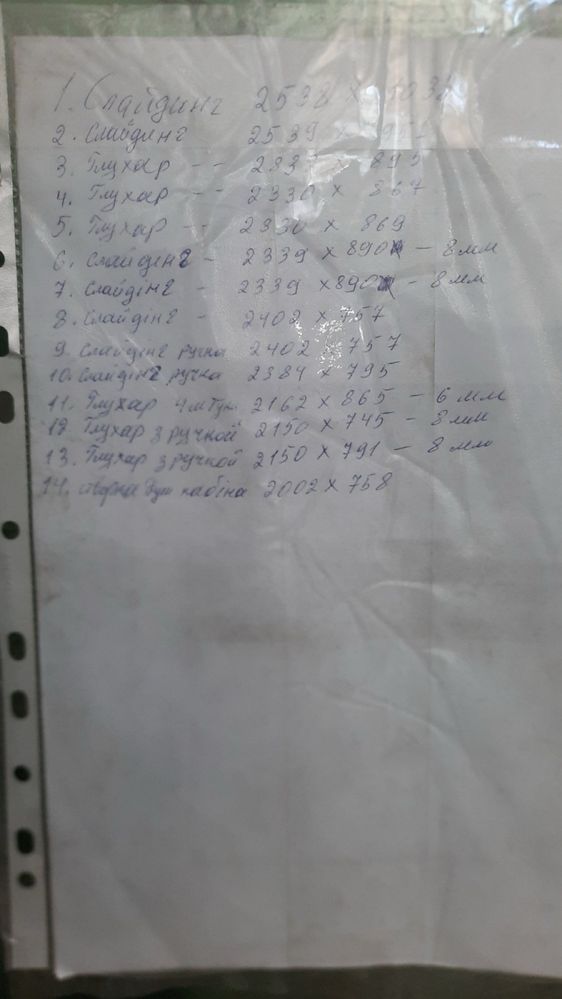 1. Слайдинг 2538 х
2. Слайдинг 2539 х
3. Глухар -- х 895
4. Глухар -- 2330 х 867
5. Глухар -- 2330 х 869
6. Слайдінг - 2339 х 890 - 8 мм
7. Слайдінг - 2339 х 890 - 8 мм
8. Слайдінг - 2402 х 757
9. Слайдінг ручка 2402 х 757
10. Слайдінг ручка 2384 х 795
11. Глухар 4 штук. 2162 х 865 - 6 мм
12. Глухар з ручкой 2150 х 745 - 8 мм
13. Глухар з ручкой 2150 х 791 - 8 мм
14. створка душ кабіна 2002 х 758